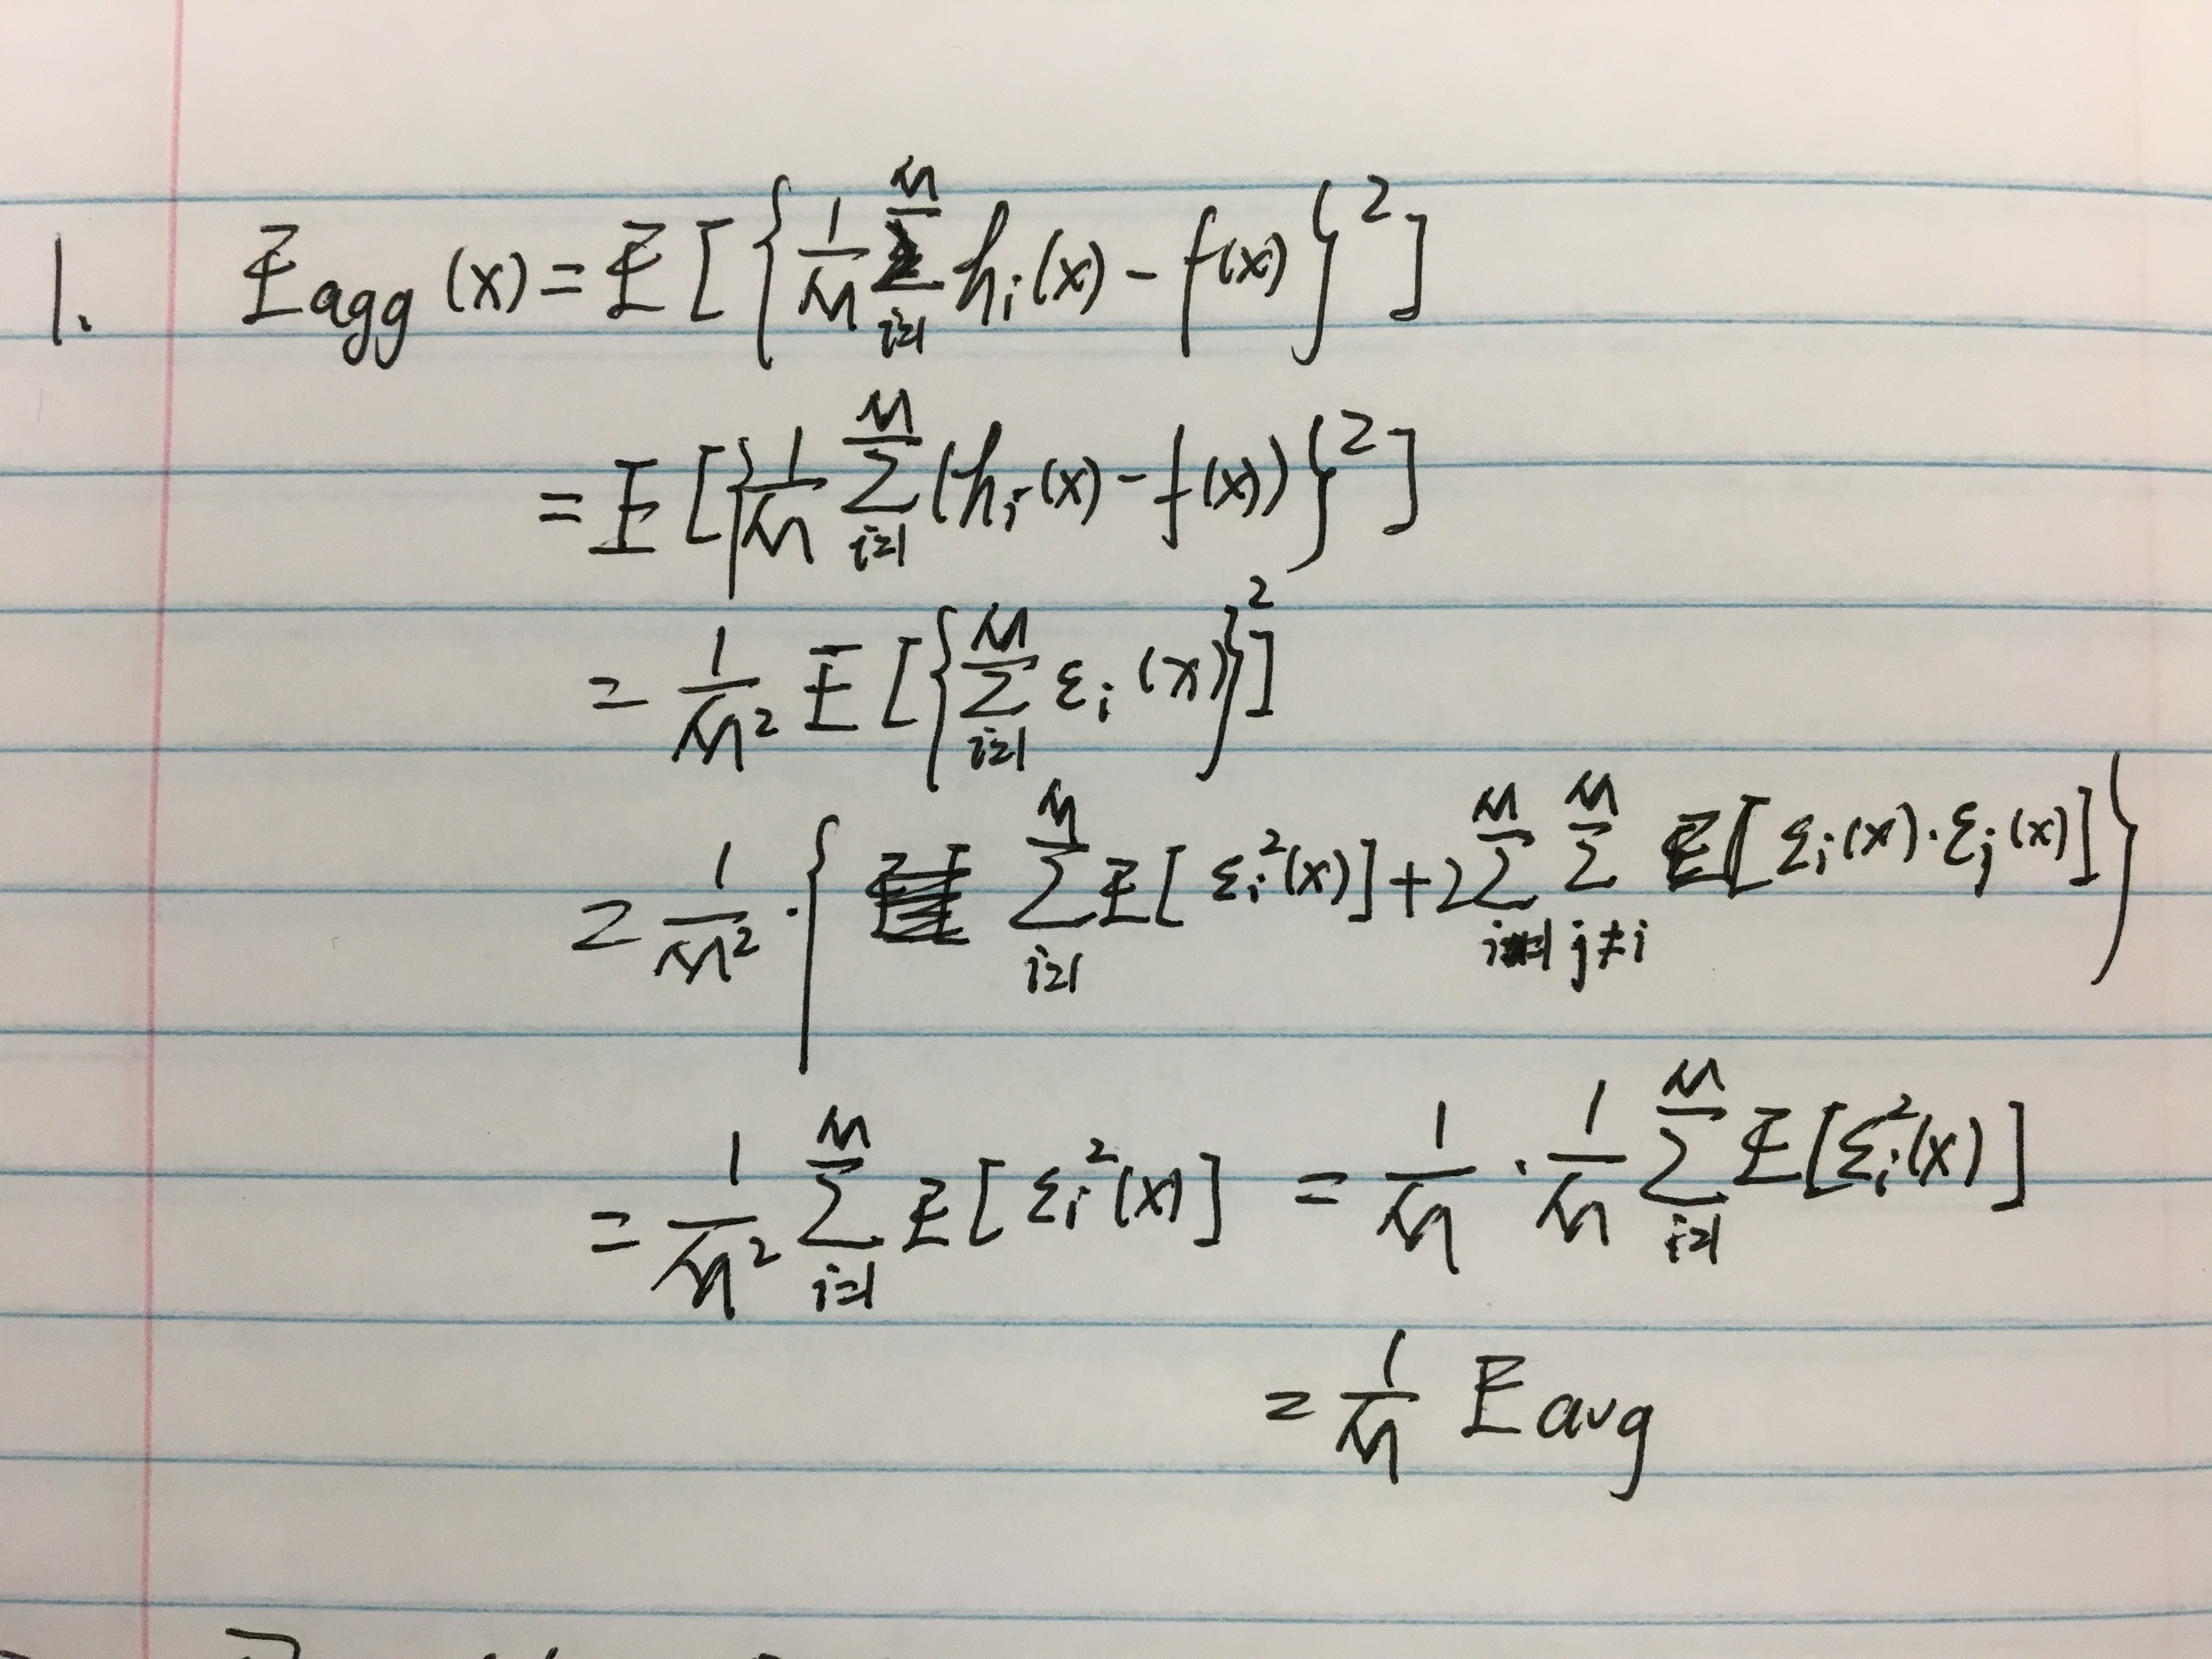 1. E_agg (x) = E [ { 1/M ∑_{i=1}^{M} h_i(x) - f(x) }^2 ]
= E [ { 1/M ∑_{i=1}^{M} (h_i(x) - f(x)) }^2 ]
= 1/M^2 E [ { ∑_{i=1}^{M} ε_i(x) }^2 ]
= 1/M^2 · { ∑_{i=1}^{M} E[ ε_i^2(x) ] + 2 ∑_{i=1}^{M} ∑_{j≠i}^{M} E[ ε_i(x) · ε_j(x) ] }
= 1/M^2 ∑_{i=1}^{M} E[ ε_i^2(x) ] = 1/M · 1/M ∑_{i=1}^{M} E[ ε_i^2(x) ]
= 1/M E_avg